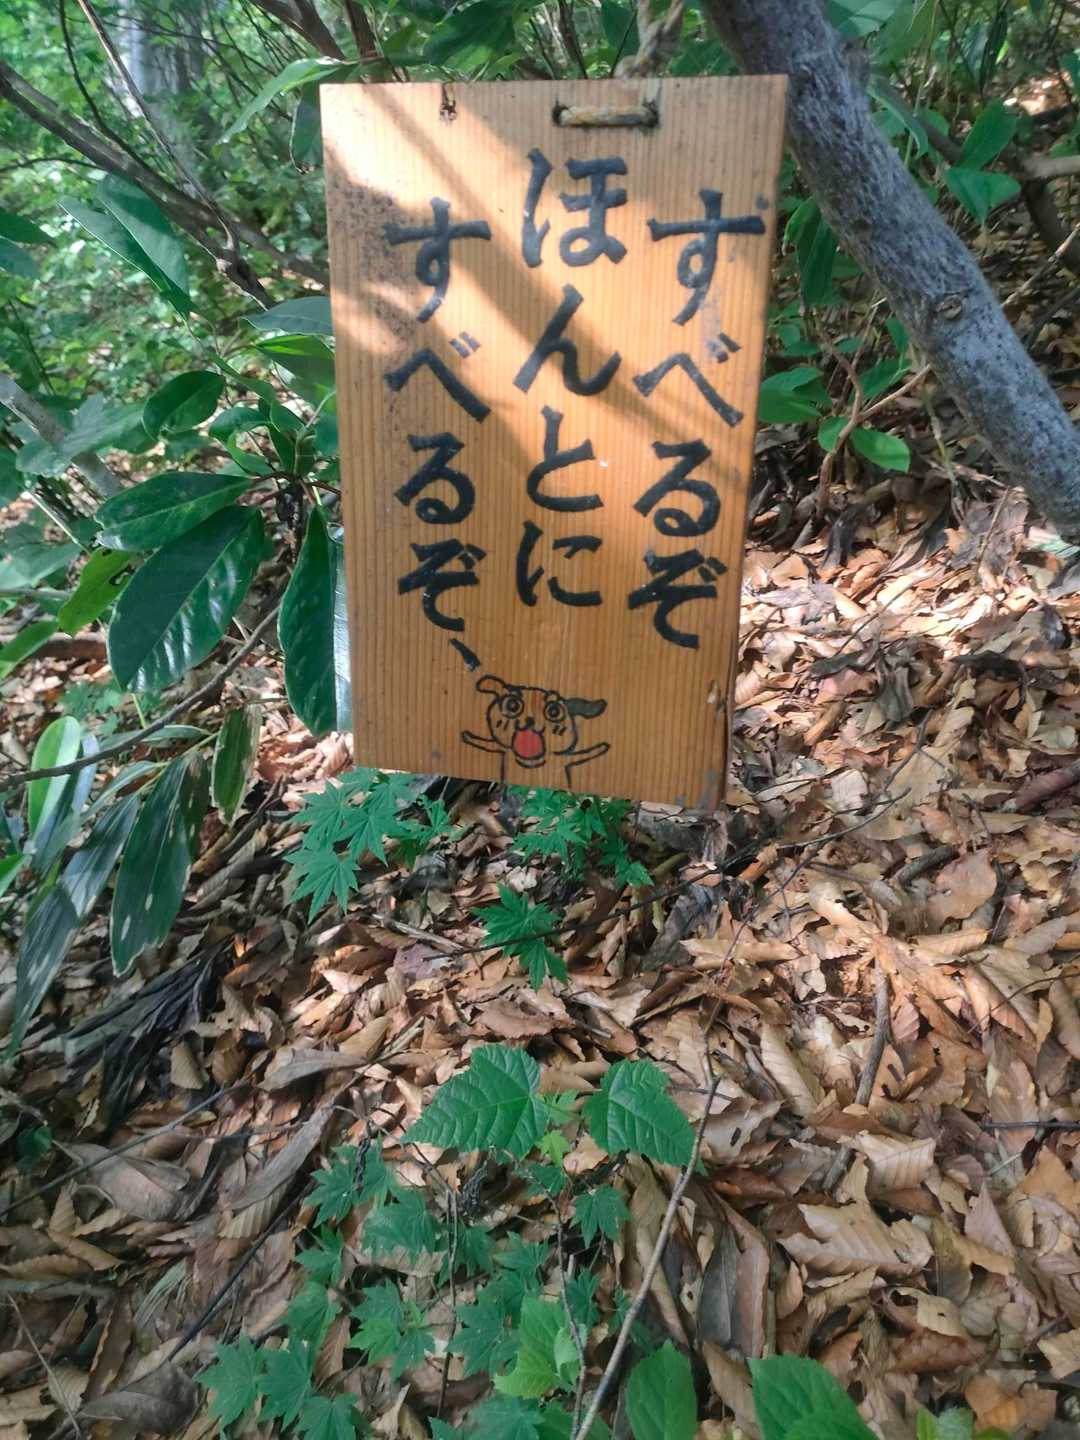 すべるぞ
ほんとに
すべるぞ、